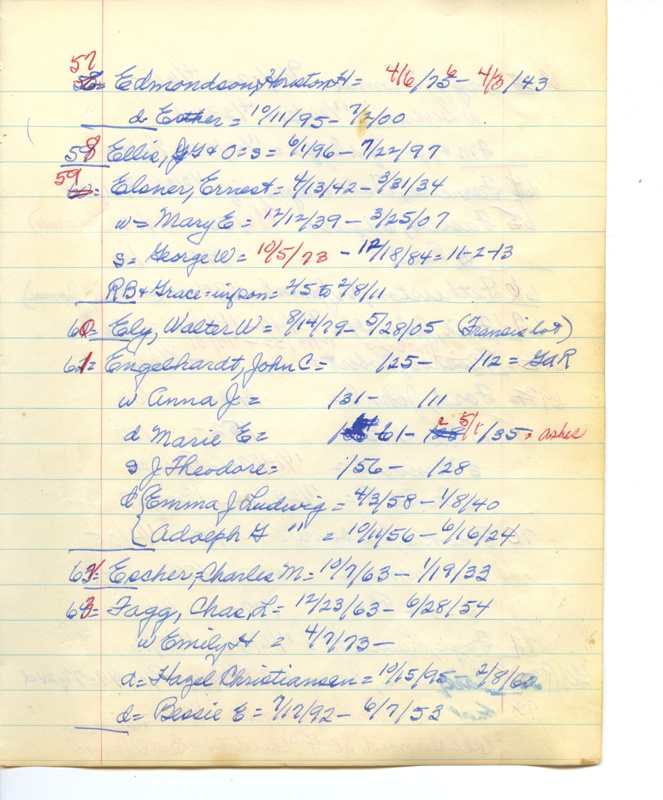 57
Edmondson, Houston H = 4/6/75 6 - 4/3/43
d Esther = 10/11/95 - 7/2/00
58 Ellis, J & O = s = 6/1/96 - 7/22/97
59 = Elsner, Ernest = 4/13/42 - 3/31/34
w = Mary E = 12/12/39 - 3/25/07
s = George W = 10/5/73 - 12/18/84 = 11-2-13
RB & Grace = inf son = 2/5 to 2/8/11
60 = Ely, Walter W = 8/14/79 - 5/28/05 (Francis lot)
61 = Engelhardt, John C = /25 - /12 = GAR
w Anna J = /31 - /11
d Marie E = 61 - 5/1/35 = ashes
s J Theodore = /56 - /28
d { Emma J Ludwig = 4/3/58 - 1/8/40
{ Adolph G " = 10/11/56 - 6/16/24
62 = Escher, Charles M = 10/7/63 - 1/19/33
63 = Fagg, Chas, L = 12/23/63 - 6/28/54
w Emily H = 4/7/73 -
d = Hazel Christiansen = 10/15/95 2/8/60
d = Bessie E = 7/17/92 - 6/7/53